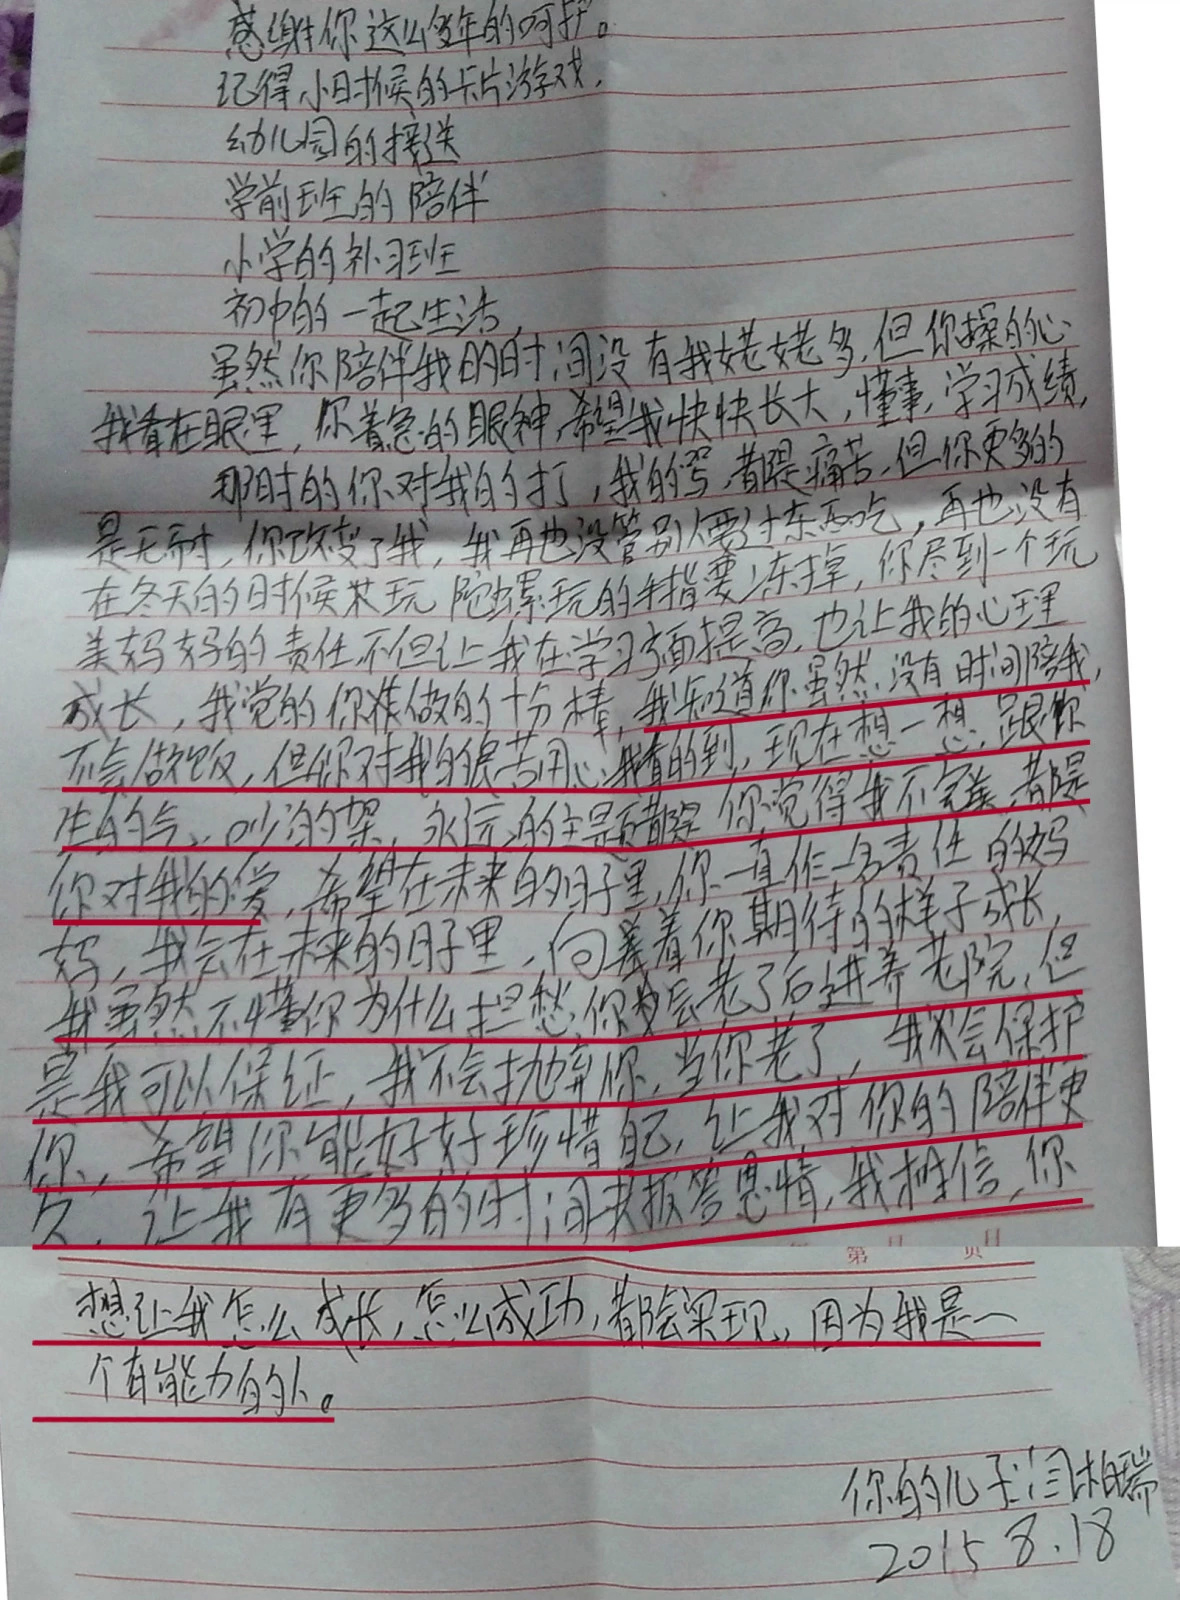 感谢你这么多年的呵护。
记得小时候的卡片游戏,
幼儿园的接送
学前班的陪伴
小学的补习班
初中的一起生活,
虽然你陪伴我的时间没有我姥姥多,但你操的心
我看在眼里,你着急的眼神,希望我快快长大,懂事,学习成绩,
那时的你对我的打,我的骂,都是痛苦,但你更多的
是无奈,你改变了我,我再也没管别人要过东西吃,再也没有
在冬天的时候某玩陀螺玩的手指要冻掉,你尽到一个完
美妈妈的责任,不但让我在学习方面提高,也让我的心理
成长,我觉的你准做的十分棒,我知道你虽然没有时间陪我,
不会做饭,但你对我的良苦用心,我看的到,现在想一想,跟你
生的气,吵的架,永远的主题都是你觉得我不完美,都是
你对我的爱,希望在未来的日子里,你一直作一名责任的妈
妈,我会在未来的日子里,向着你期待的样子成长,
我虽然不懂你为什么担愁,你会老了后进养老院,但
是我可以保证,我不会抛弃你,当你老了,我会保护
你,希望你能好好珍惜自己,让我对你的陪伴更
久,让我有更多的时间来报答恩情,我相信,你
第 页
想让我怎么成长,怎么成功,都会实现,因为我是一
个有能力的人。
你的儿子:闫柏瑞
2015 8.18